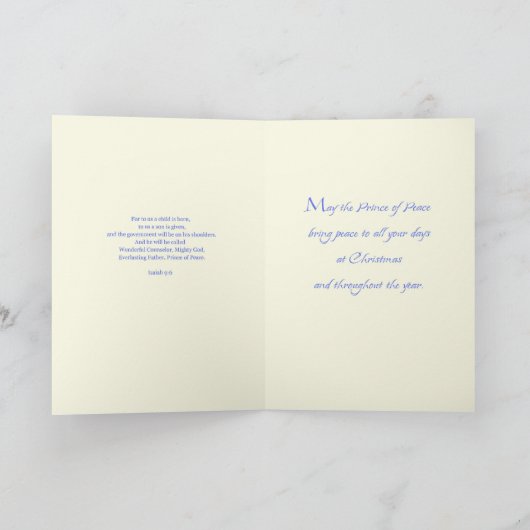 For to us a child is born,
to us a son is given,
and the government will be on his shoulders.
And he will be called
Wonderful Counselor, Mighty God,
Everlasting Father, Prince of Peace.
Isaiah 9:6
May the Prince of Peace
bring peace to all your days
at Christmas
and throughout the year.